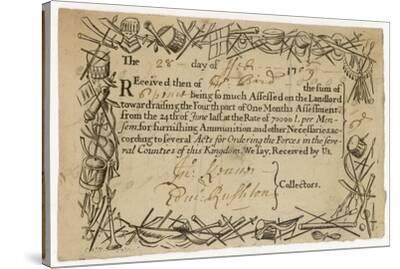 The 28 day of
Received then of Bird the sum of
being so much Assessed on the Landlord
towards raising the Fourth part of One Months Assessment
from the 24th of June last at the Rate of 70000 l. per Men-
sem, for furnishing Ammunition and other Necessaries, ac-
cording to several Acts for Ordering the Forces in the seve-
ral Counties of this Kingdom. We say, Received by Us.
Collectors.
Rushton